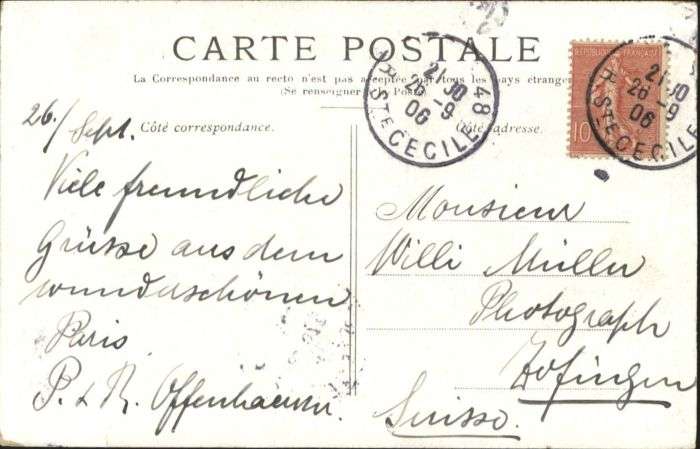 CARTE POSTALE
La Correspondance au recto n'est pas acceptée par tous les pays étrangers
(Se renseigner à la Poste)
Côté correspondance.
Côté adresse.
26./Sept.
Viele freundliche
Grüsse aus dem
wunderschönen
Paris
P. & R.
Monsieur
Willi Müller
Photograph
Zofingen
Suisse.
21 30
26 -9
06
R. STE CECILE 48
RÉPUBLIQUE FRANÇAISE
10
21 30
26 -9
06
R. STE CECILE